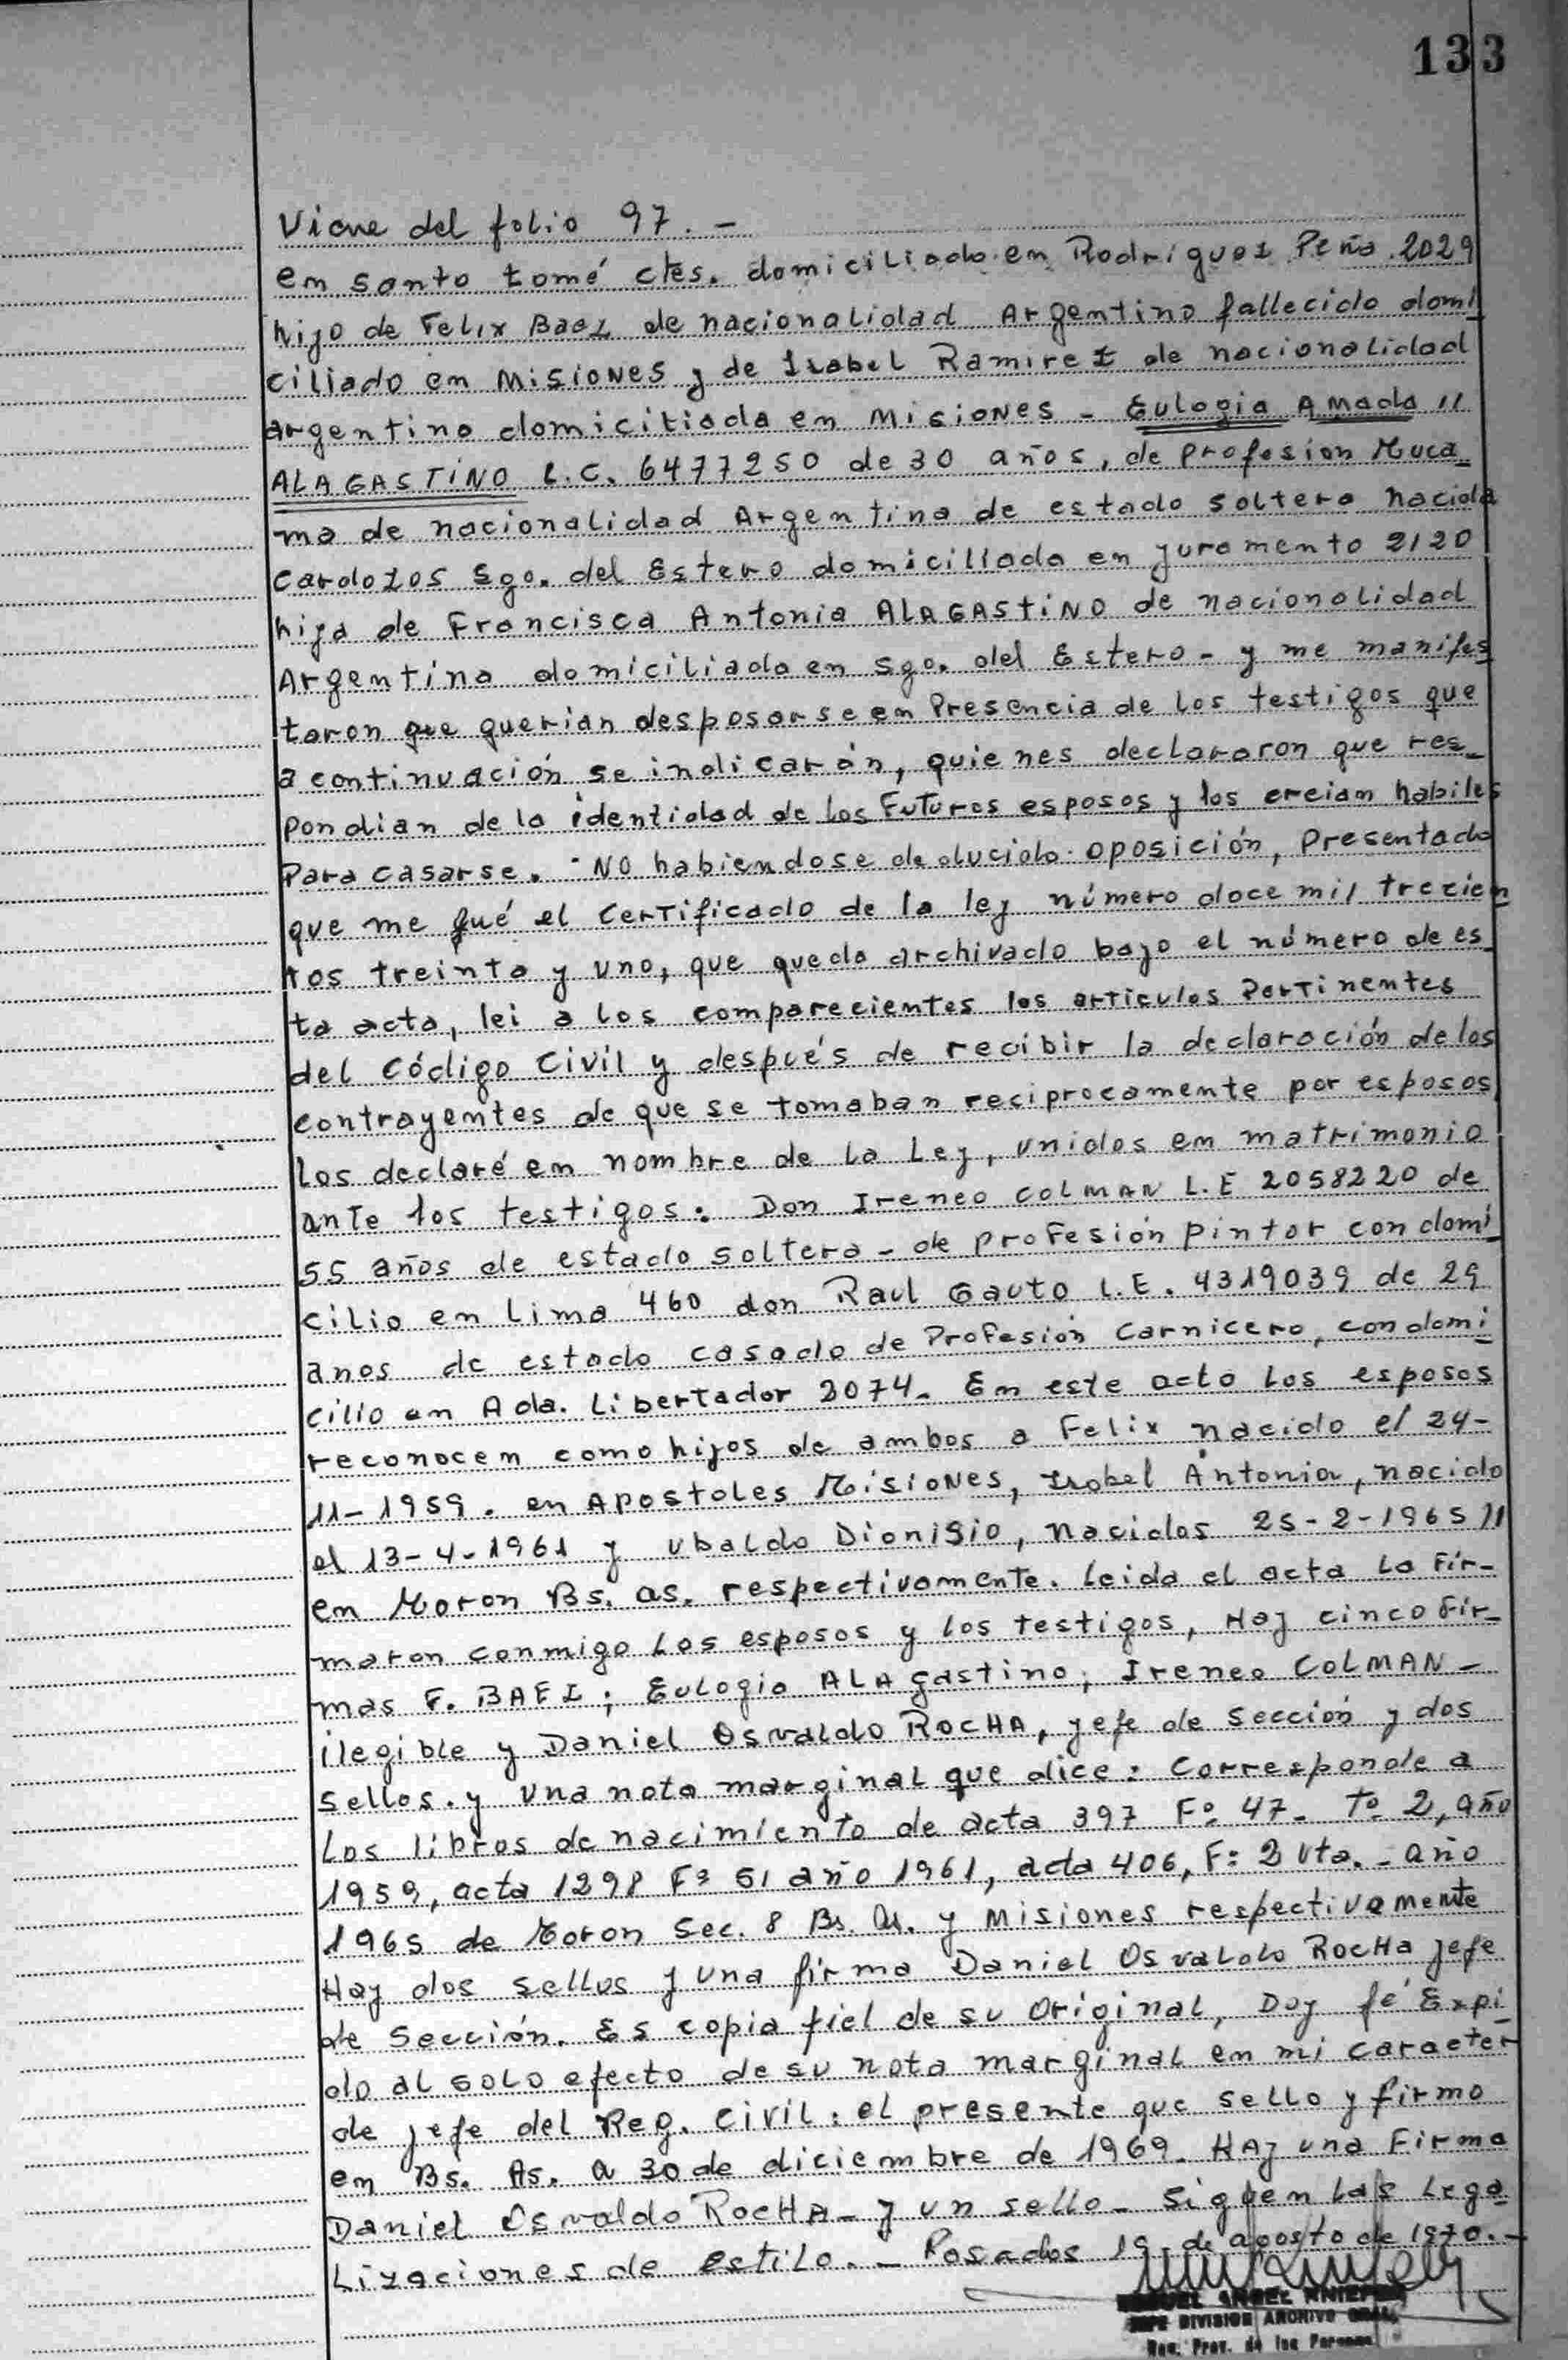 133
Viene del folio 97. -
en santo tomé ctes. domiciliado en Rodriguez Peña 2029
hijo de Felix Baez de nacionalidad Argentino fallecido domi
ciliado en Misiones y de Isabel Ramirez de nacionalidad
argentina domiciliada en Misiones - Eulogia Amada //
ALAGASTINO L.C. 6477250 de 30 años, de profesion Muca_
ma de nacionalidad Argentina de estado soltera nacida
Cardozos Sgo. del Estero domiciliada en juramento 2120
hija de Francisca Antonia ALAGASTINO de nacionalidad
Argentina domiciliada en Sgo. del Estero - y me manifes
taron que querian desposarse en Presencia de los testigos que
a continuación se indicarán, quienes declararon que res_
pondian de la identidad de los Futuros esposos y los creian habiles
Para casarse. - NO habiendose deducido oposición, Presentado
que me fué el Certificado de la ley número doce mil trecien
tos treinta y uno, que queda archivado bajo el número de es_
ta acta, lei a los comparecientes los articulos Pertinentes
del Código Civil y después de recibir la declaración de los
contrayentes de que se tomaban reciprocamente por esposos
los declaré en nombre de la Ley, unidos en matrimonio
ante los testigos: Don Ireneo COLMAN L.E 2058220 de
55 años de estado soltero - de profesión pintor con domi
cilio en Lima 460 don Raul Gauto L.E. 4319039 de 29
anos de estado casado de Profesión Carnicero, con domi
cilio en Ada. Libertador 2074. En este acto los esposos
reconocen como hijos de ambos a Felix nacido el 24-
11-1959. en Apostoles Misiones, Isabel Antonia, nacida
el 13-4-1961 y Ubaldo Dionisio, nacidos 25-2-1965 //
en Moron Bs. as. respectivamente. Leida el acta la Fir-
maron conmigo los esposos y los testigos, Hay cinco Fir_
mas F. BAEZ; Eulogia ALAgastino; Ireneo COLMAN -
ilegible y Daniel Osvaldo ROCHA, jefe de sección y dos
sellos. y una nota marginal que dice: Corresponde a
Los libros de nacimiento de acta 397 Fº 47- Tº 2, año
1959, acta 1298 Fº 51 año 1961, acta 406, F: 2 Vta. - año
1965 de Moron Sec. 8 Bs. As. y Misiones respectivamente
Hay dos sellos y una firma Daniel Osvaldo ROCHA jefe
de Sección. Es copia fiel de su Original, Doy fé Expi
do al solo efecto de su nota marginal en mi caracter
de jefe del Reg. Civil: el presente que sello y firmo
en Bs. As. a 30 de diciembre de 1969. HAy una Firma
Daniel Osvaldo ROCHA - y un sello - Siguen las Lega
Lizaciones de estilo. - Posadas 19 de agosto de 1970. -
JEFE DIVISION ARCHIVO GRAL.
Reg. Prov. de las Personas